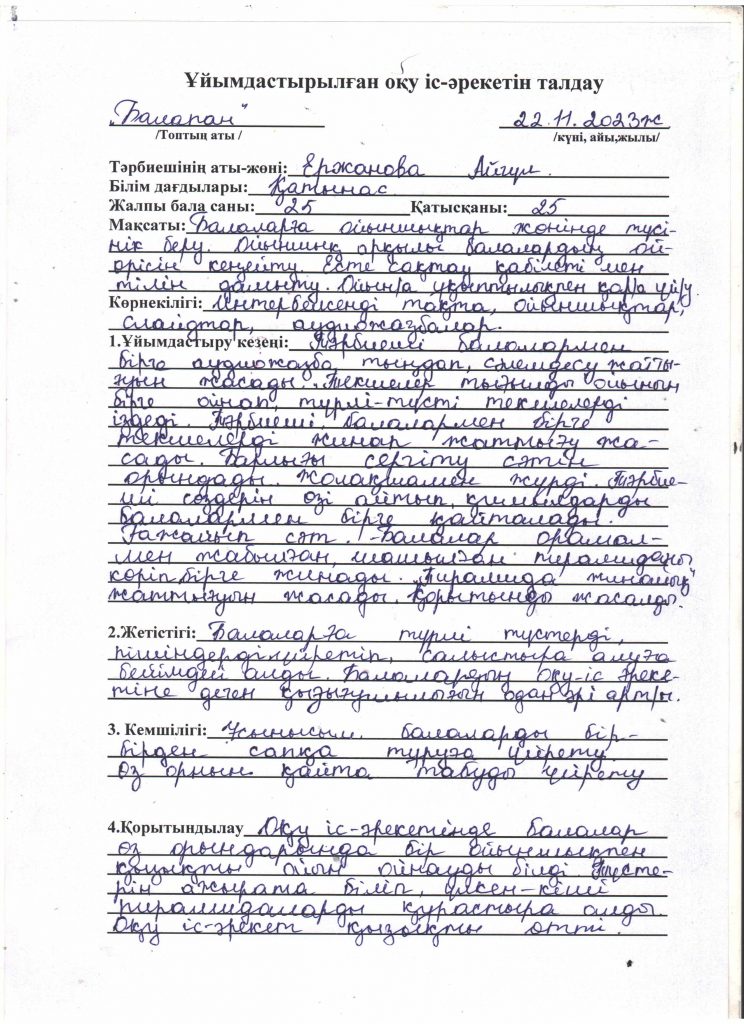 Ұйымдастырылған оқу іс-әрекетін талдау
„Балапан" 22.11.2023ж
/Топтың аты / /күні, айы,жылы/
Тәрбиешінің аты-жөні: Ержанова Айгүл.
Білім дағдылары: Қатынас
Жалпы бала саны: 25 Қатысқаны: 25
Мақсаты: Балаларға ойыншықтар жөнінде түсі-
нік беру. Ойыншық арқылы балалардың ой-
өрісін кеңейту. Есте сақтау қабілеті мен
тілін дамыту. Ойынға ұқыптылықпен қарауға үйрету.
Көрнекілігі: Интербелсенді тақта, ойыншықтар,
слайдтар, аудиожазбалар.
1.Ұйымдастыру кезеңі: Тәрбиеші балалармен
бірге аудиожазба тыңдап, сәлемдесу жатты-
ғуын жасады. Текшелер тығылды ойынын
бірге ойнап, түрлі-түсті текшелерді
іздеді. Тәрбиеші балалармен бірге
текшелерді жинап жаттығу жа-
сады. Барлығы сергіту сәтін
орындады. Жолақшамен жүрді. Тәрбие-
ші сөздерін өзі айтып, қимылдарды
балалармен бірге қайталады.
Ғажайып сәт. -Балалар орамал-
мен жабылған, шашылған пирамиданы
көріп бірге жинады. „Пирамида жинайық"
жаттығуын жасады. Қорытынды жасалды.
2.Жетістігі: Балаларға түрлі түстерді,
пішіндерді үйретіп, салыстыра алуға
бейімдей алды. Балалардың оқу-іс әреке-
тіне деген қызығушылығын одан әрі артты.
3. Кемшілігі: Ұсынысым балаларды бір-
бірден сапқа тұруға үйрету.
Өз орнын қайта табуды үйрету
4.Қорытындылау Оқу іс-әрекетінде балалар
өз орындарында бір ойыншықпен
қызықты ойын ойнауды білді. Түсте-
рін ажырата біліп, үлкен-кіші
пирамидаларды құрастыра алды.
Оқу іс-әрекет қызықты өтті.